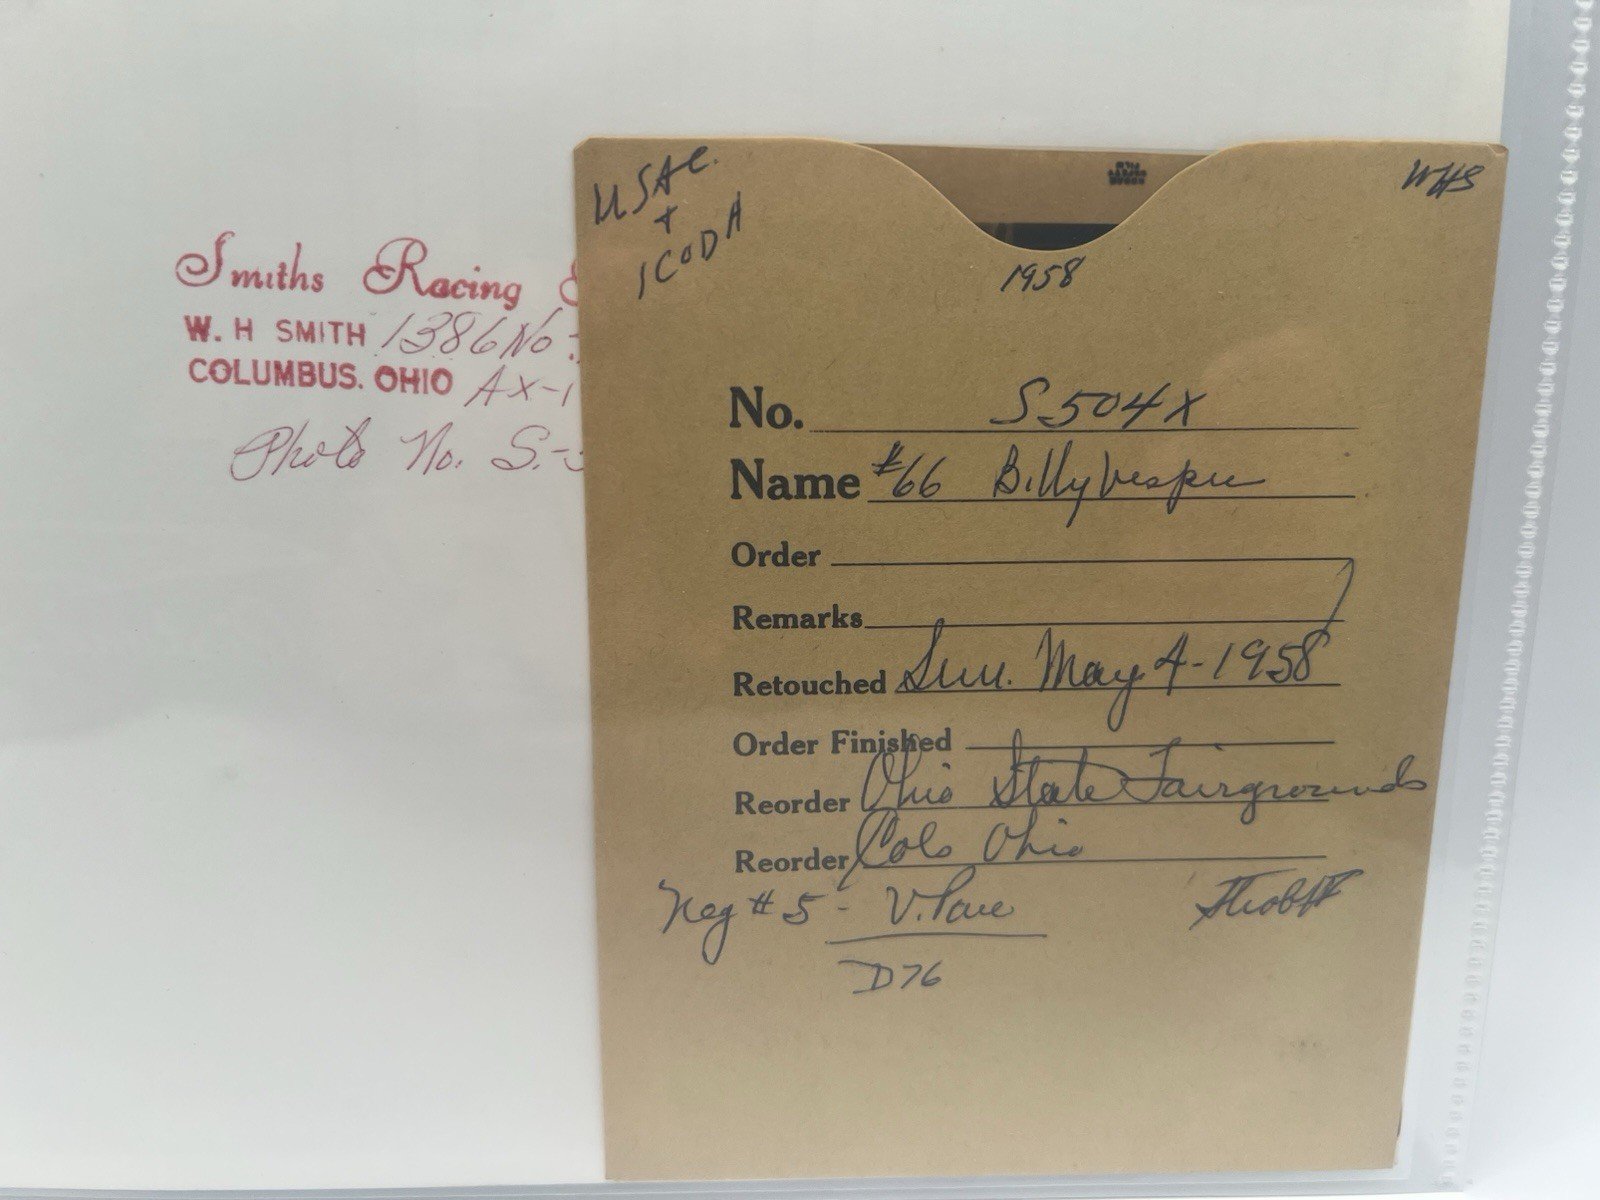 Smiths Racing
W. H SMITH 1386 No
COLUMBUS. OHIO AX-1
Photo No. S-
USAC.
+
ICODA
WHS
KODAK
SAFETY
FILM
1958
No. S504X
Name #66 Billy Vespee
Order
Remarks
Retouched Sun. May 4-1958
Order Finished
Reorder Ohio State Fairgrounds
Reorder Colo Ohio
Neg # 5 - V. Pan
D76